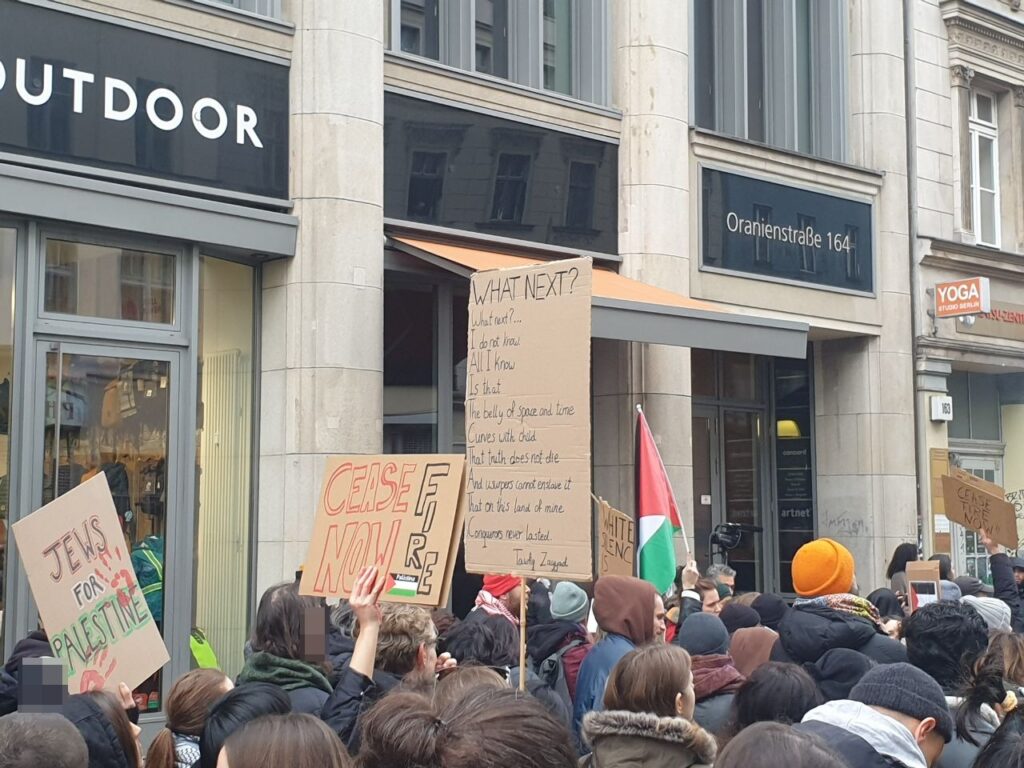 OUTDOOR
Oranienstraße 164
YOGA
STUDIO BERLIN
163
WHAT NEXT?
What next?...
I do not know
All I know
Is that
The belly of space and time
Curves with child
That truth does not die
And usurpers cannot enslave it
That on this land of mine
Conquerors never lasted.
Tawfiq Zayyad
CEASE
FIRE
NOW
Palästina
JEWS
FOR
PALESTINE
WHITE
SILENC
CEASE
FIRE
NOW
concert
artnet